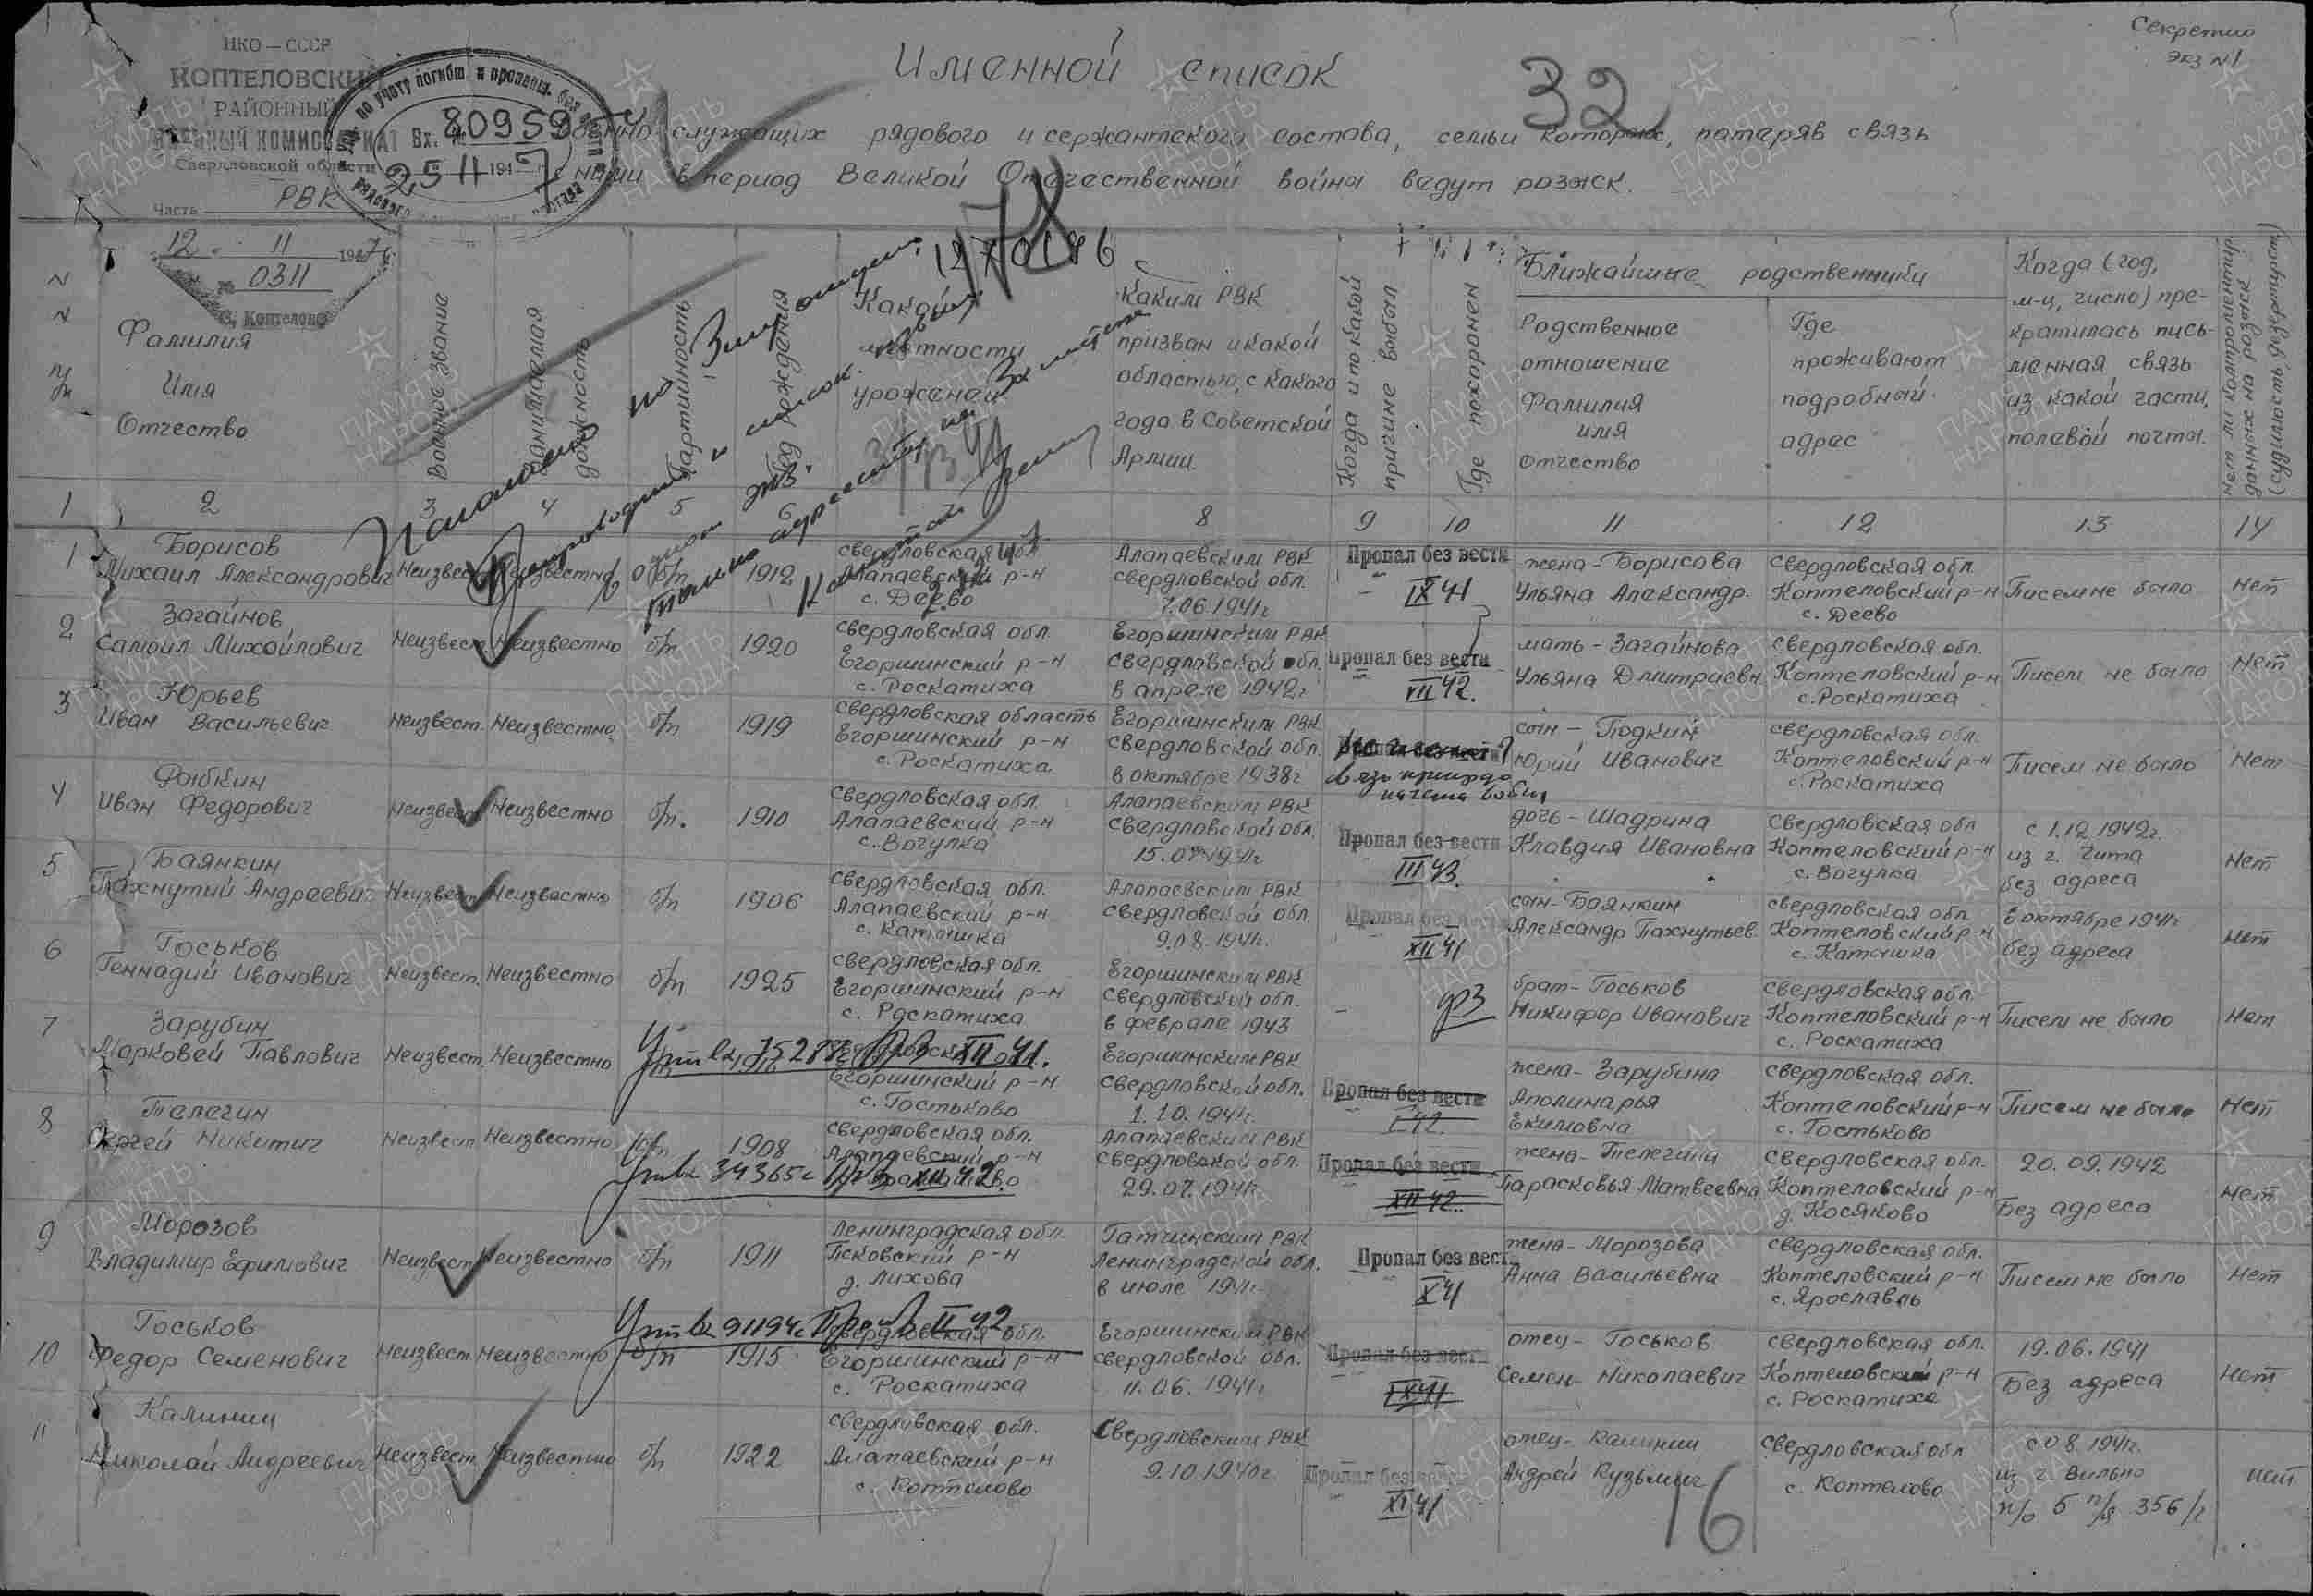 Секретно
экз N1
НКО — СССР
КОПТЕЛОВСКИЙ
РАЙОННЫЙ
ВОЕННЫЙ КОМИССАРИАТ
Свердловской области
РВК
Часть
12 11 1947
№ 0311
с. Коптелово
по учету погибш. и пропавш. без
Вх. 80959
25 11 1947
Именной список
32
военнослужащих рядового и сержантского состава, семьи которых, потеряв связь
с ними в период Великой Отечественной войны ведут розыск.
78
N N п/п
Фамилия Имя Отчество
Военное звание
Занимаемая должность
Партийность
Год рождения
Какой местности уроженец
Каким РВК призван и какой областью, с какого года в Советской Армии
Когда и по какой причине выбыл
Где похоронен
Ближайшие родственники
Родственное отношение Фамилия имя Отчество
Где проживают подробный адрес
Когда (год, м-ц, число) прекратилась письменная связь из какой части, полевой почты.
Нет ли компрометир. данных на розыск (судимость, дезертирст.)
1 2 3 4 5 6 8 9 10 11 12 13 14
1 Борисов Михаил Александрович Неизвест. Неизвестно б/п 1912 Свердловская обл. Алапаевский р-н с. Деево Алапаевским РВК Свердловской обл. 7.06.1941г Пропал без вести IX 41 жена - Борисова Ульяна Александр. Свердловская обл. Коптеловский р-н с. Деево Писем не было Нет
2 Загайнов Самоил Михайлович Неизвест. Неизвестно б/п 1920 Свердловская обл. Егоршинский р-н с. Роскатиха Егоршинским РВК Свердловской обл. в апреле 1942г Пропал без вести VII 42. мать - Загайнова Ульяна Дмитраевн Свердловская обл. Коптеловский р-н с. Роскатиха Писем не было Нет
3 Юрьев Иван Васильевич Неизвест. Неизвестно б/п 1919 Свердловская область Егоршинский р-н с. Роскатиха Егоршинским РВК Свердловской обл. в октябре 1938г сын - Подкин Юрий Иванович Свердловская обл. Коптеловский р-н с. Роскатиха Писем не было Нет
4 Рыбкин Иван Федорович Неизвест Неизвестно б/п. 1910 Свердловская обл. Алапаевский р-н с. Вогулка Алапаевским РВК Свердловской обл. 15.07.1941г Пропал без вести III 43. дочь - Шадрина Клавдия Ивановна Свердловская обл Коптеловский р-н с. Вогулка с 1.12.1942г. из г. Чита без адреса Нет
5 Баянкин Пахнутий Андреевич Неизвест Неизвестно б/п 1906 Свердловская обл. Алапаевский р-н с. Катышка Алапаевским РВК Свердловской обл 9.08.1941г. Пропал без вести XII 41 сын - Баянкин Александр Пахнутьев. Свердловская обл. Коптеловский р-н с. Катышка В октябре 1941г без адреса Нет
6 Госьков Геннадий Иванович Неизвест. Неизвестно б/п 1925 Свердловская обл. Егоршинский р-н с. Роскатиха Егоршинским РВК Свердловской обл. в феврале 1943 брат - Госьков Никифор Иванович Свердловская обл. Коптеловский р-н с. Роскатиха Писем не было Нет
7 Зарубин Марковей Павлович Неизвест. Неизвестно XII 41. Егоршинский р-н с. Гостьково Егоршинским РВК Свердловской обл. 1.10.1941г. Пропал без вести I 42. жена - Зарубина Аполинарья Екимовна Свердловская обл. Коптеловский р-н с. Гостьково Писем не было Нет
8 Телегин Сергей Никитич Неизвест Неизвестно б/п 1908 Свердловская обл. Алапаевский р-н 34365с XII 42. Алапаевским РВК Свердловской обл. 29.07.1941г. Пропал без вести XII 42. жена - Телегина Парасковья Матвеевна Свердловская обл. Коптеловский р-н д. Косяково 20.09.1942 Без адреса Нет
9 Морозов Владимир Ефимович Неизвест Неизвестно б/п 1911 Ленинградская обл. Псковский р-н д. Лихова Гатчинским РВК Ленинградской обл. в июле 1941г. Пропал без вести X 41 жена - Морозова Анна Васильевна Свердловская обл. Коптеловский р-н с. Ярославль Писем не было Нет
91194с II 42.
10 Госьков Федор Семенович Неизвест Неизвестно б/п 1915 Свердловская обл. Егоршинский р-н с. Роскатиха Егоршинским РВК Свердловской обл. 11.06.1941г Пропал без вести IX 41 отец - Госьков Семен Николаевич Свердловская обл. Коптеловский р-н с. Роскатиха 19.06.1941 Без адреса Нет
11 Калинин Николай Андреевич Неизвест Неизвестно б/п 1922 Свердловская обл. Алапаевский р-н с. Коптелово Свердловским РВК 9.10.1940г. Пропал без вести XI 41 отец - Калинин Андрей Кузьмич Свердловская обл. с. Коптелово с 08.1941г. из г. Вильно п/о 5 п/я 356/2 нет
16
ПАМЯТЬ НАРОДА